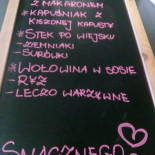 Z MAKARONEM
* KAPUŚNIAK Z
KISZONEJ KAPUSTY
* STEK PO WIEJSKU
- ZIEMNIAKI
- SURÓWKI
* WOŁOWINA W SOSIE
- RYŻ
- LECZO WARZYWNE
SMACZNEGO